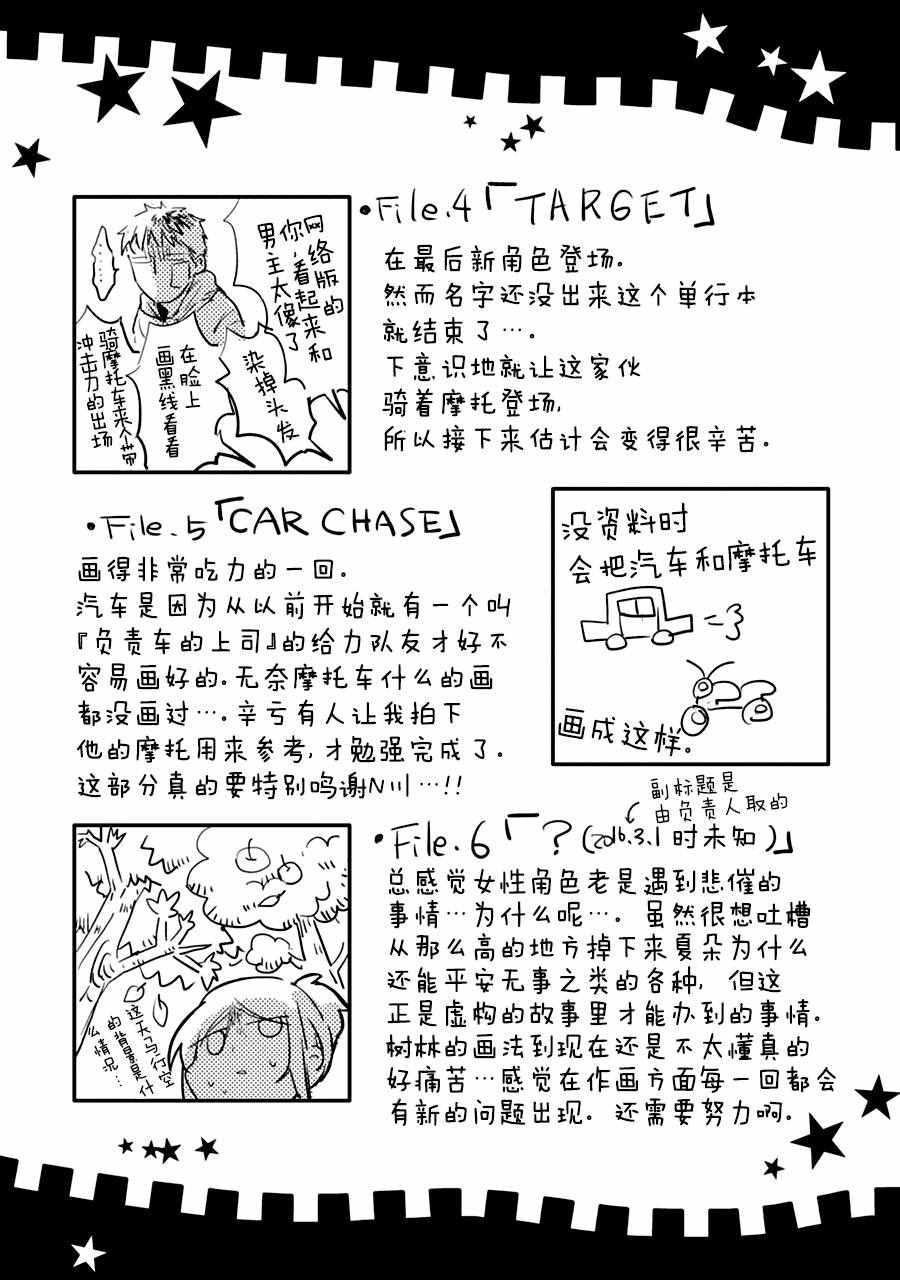 •File.4「TARGET」
在最后新角色登场。
然而名字还没出来这个单行本
就结束了…。
下意识地就让这家伙
骑着摩托登场,
所以接下来估计会变得很辛苦。
网络版的
你,看起来和
男主太像了
……
染掉头发
在脸上
画黑线看看
骑摩托车来个带
冲击力的出场
•File.5「CAR CHASE」
画得非常吃力的一回。
汽车是因为从以前开始就有一个叫
『负责车的上司』的给力队友才好不
容易画好的。无奈摩托车什么的画
都没画过…。辛亏有人让我拍下
他的摩托用来参考,才勉强完成了。
这部分真的要特别鸣谢N川…!!
没资料时
会把汽车和摩托车
画成这样。
副标题是
由负责人取的
•File.6「?(2016.3.1时未知)」
总感觉女性角色老是遇到悲催的
事情…为什么呢…。虽然很想吐槽
从那么高的地方掉下来夏朵为什么
还能平安无事之类的各种,但这
正是虚构的故事里才能办到的事情。
树林的画法到现在还是不太懂真的
好痛苦…感觉在作画方面每一回都会
有新的问题出现。还需要努力啊。
这天马行空
的背景是什
么情况…